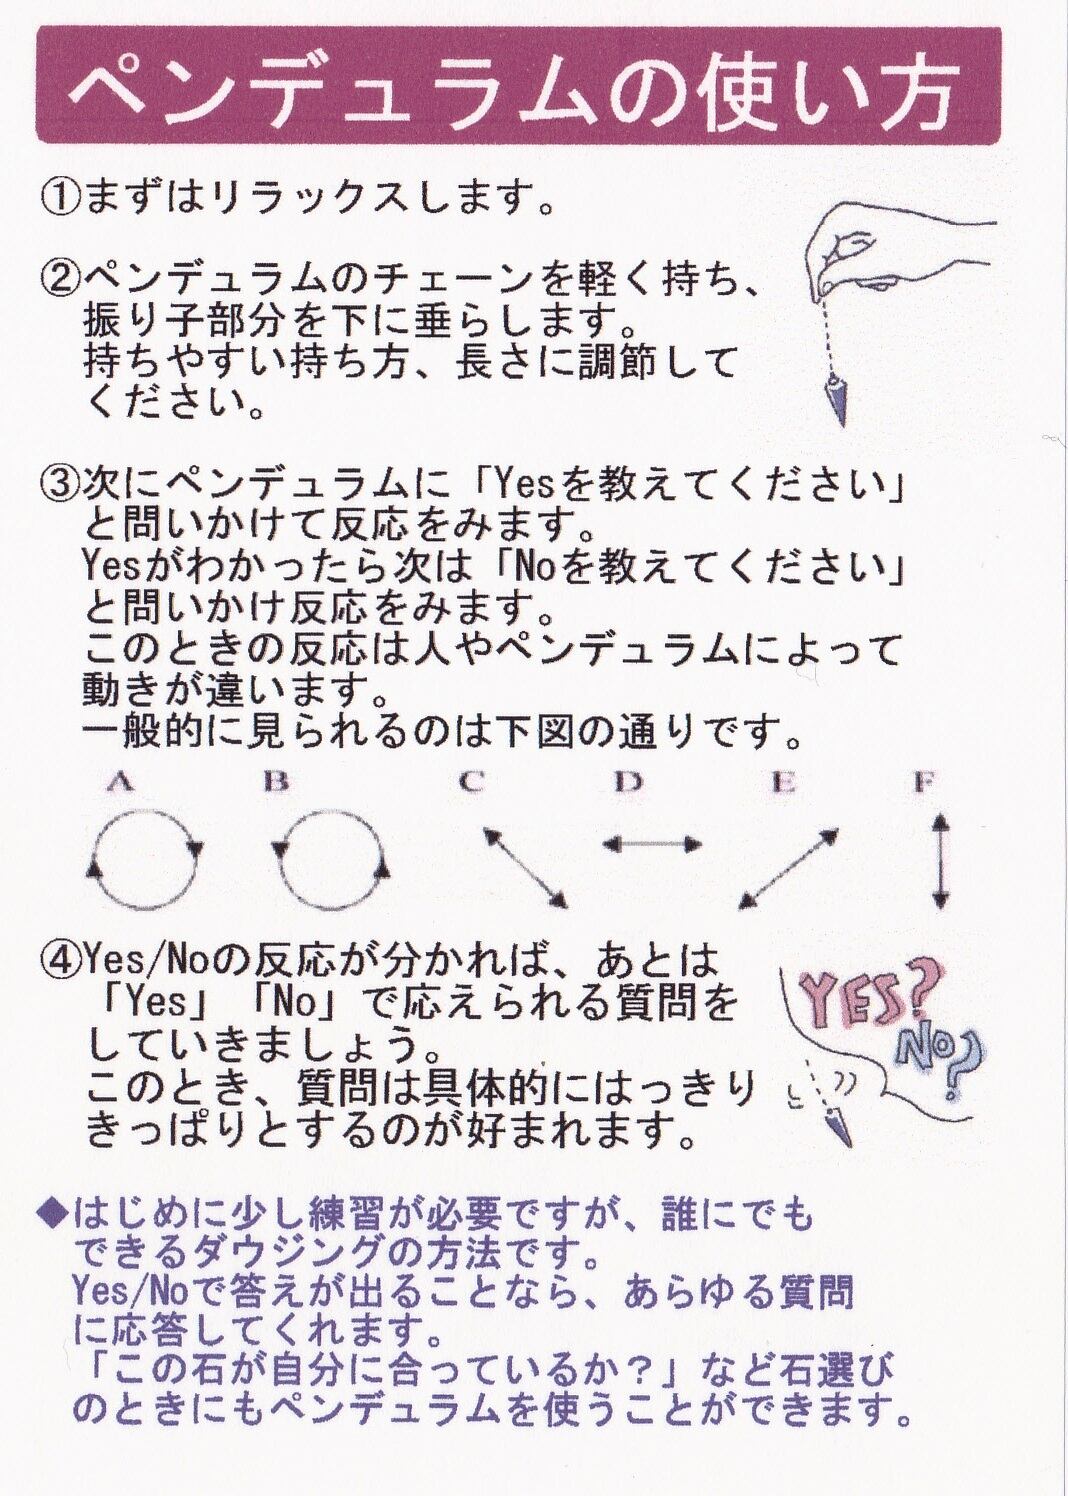 ペンデュラムの使い方
①まずはリラックスします。
②ペンデュラムのチェーンを軽く持ち、
振り子部分を下に垂らします。
持ちやすい持ち方、長さに調節して
ください。
③次にペンデュラムに「Yesを教えてください」
と問いかけて反応をみます。
Yesがわかったら次は「Noを教えてください」
と問いかけ反応をみます。
このときの反応は人やペンデュラムによって
動きが違います。
一般的に見られるのは下図の通りです。
A B C D E F
④Yes/Noの反応が分かれば、あとは
「Yes」「No」で応えられる質問を
していきましょう。
このとき、質問は具体的にはっきり
きっぱりとするのが好まれます。
YES?
No?
◆はじめに少し練習が必要ですが、誰にでも
できるダウジングの方法です。
Yes/Noで答えが出ることなら、あらゆる質問
に応答してくれます。
「この石が自分に合っているか？」など石選び
のときにもペンデュラムを使うことができます。